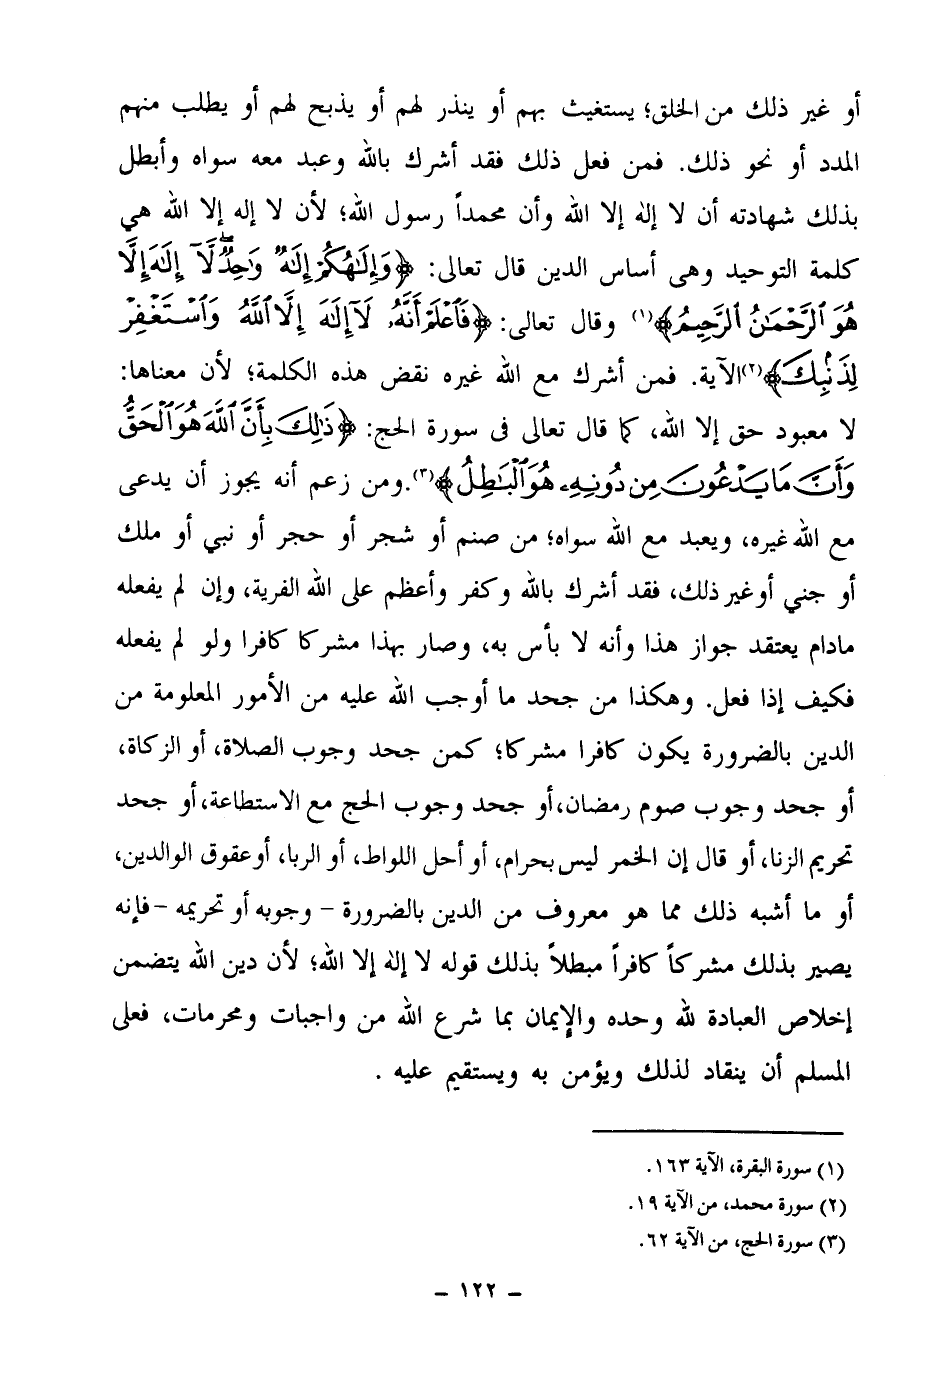 أو غير ذلك من الخلق؛ يستغيث بهم أو ينذر لهم أو يذبح لهم أو يطلب منهم
المدد أو نحو ذلك. فمن فعل ذلك فقد أشرك بالله وعبد معه سواه وأبطل
بذلك شهادته أن لا إله إلا الله وأن محمداً رسول الله؛ لأن لا إله إلا الله هي
كلمة التوحيد وهى أساس الدين قال تعالى: ﴿وَإِلَٰهُكُمْ إِلَٰهٌ وَٰحِدٌ ۖ لَّآ إِلَٰهَ إِلَّا
هُوَ ٱلرَّحْمَٰنُ ٱلرَّحِيمُ﴾(١) وقال تعالى: ﴿فَٱعْلَمْ أَنَّهُۥ لَآ إِلَٰهَ إِلَّا ٱللَّهُ وَٱسْتَغْفِرْ
لِذَنۢبِكَ﴾(٢)الآية. فمن أشرك مع الله غيره نقض هذه الكلمة؛ لأن معناها:
لا معبود حق إلا الله، كما قال تعالى فى سورة الحج: ﴿ذَٰلِكَ بِأَنَّ ٱللَّهَ هُوَ ٱلْحَقُّ
وَأَنَّ مَا يَدْعُونَ مِن دُونِهِۦ هُوَ ٱلْبَٰطِلُ﴾(٣).ومن زعم أنه يجوز أن يدعى
مع الله غيره، ويعبد مع الله سواه؛ من صنم أو شجر أو حجر أو نبي أو ملك
أو جني أوغير ذلك، فقد أشرك بالله وكفر وأعظم على الله الفرية، وإن لم يفعله
مادام يعتقد جواز هذا وأنه لا بأس به، وصار بهذا مشركا كافرا ولو لم يفعله
فكيف إذا فعل. وهكذا من جحد ما أوجب الله عليه من الأمور المعلومة من
الدين بالضرورة يكون كافرا مشركا؛ كمن جحد وجوب الصلاة، أو الزكاة،
أو جحد وجوب صوم رمضان،أو جحد وجوب الحج مع الاستطاعة،أو جحد
تحريم الزنا، أو قال إن الخمر ليس بحرام، أو أحل اللواط، أو الربا، أوعقوق الوالدين،
أو ما أشبه ذلك مما هو معروف من الدين بالضرورة – وجوبه أو تحريمه –فإنه
يصير بذلك مشركاً كافراً مبطلاً بذلك قوله لا إله إلا الله؛ لأن دين الله يتضمن
إخلاص العبادة لله وحده والإيمان بما شرع الله من واجبات ومحرمات، فعلى
المسلم أن ينقاد لذلك ويؤمن به ويستقيم عليه .
(١) سورة البقرة، الآية ١٦٣.
(٢) سورة محمد، من الآية ١٩.
(٣) سورة الحج، من الآية ٦٢.
– ١٢٢ –